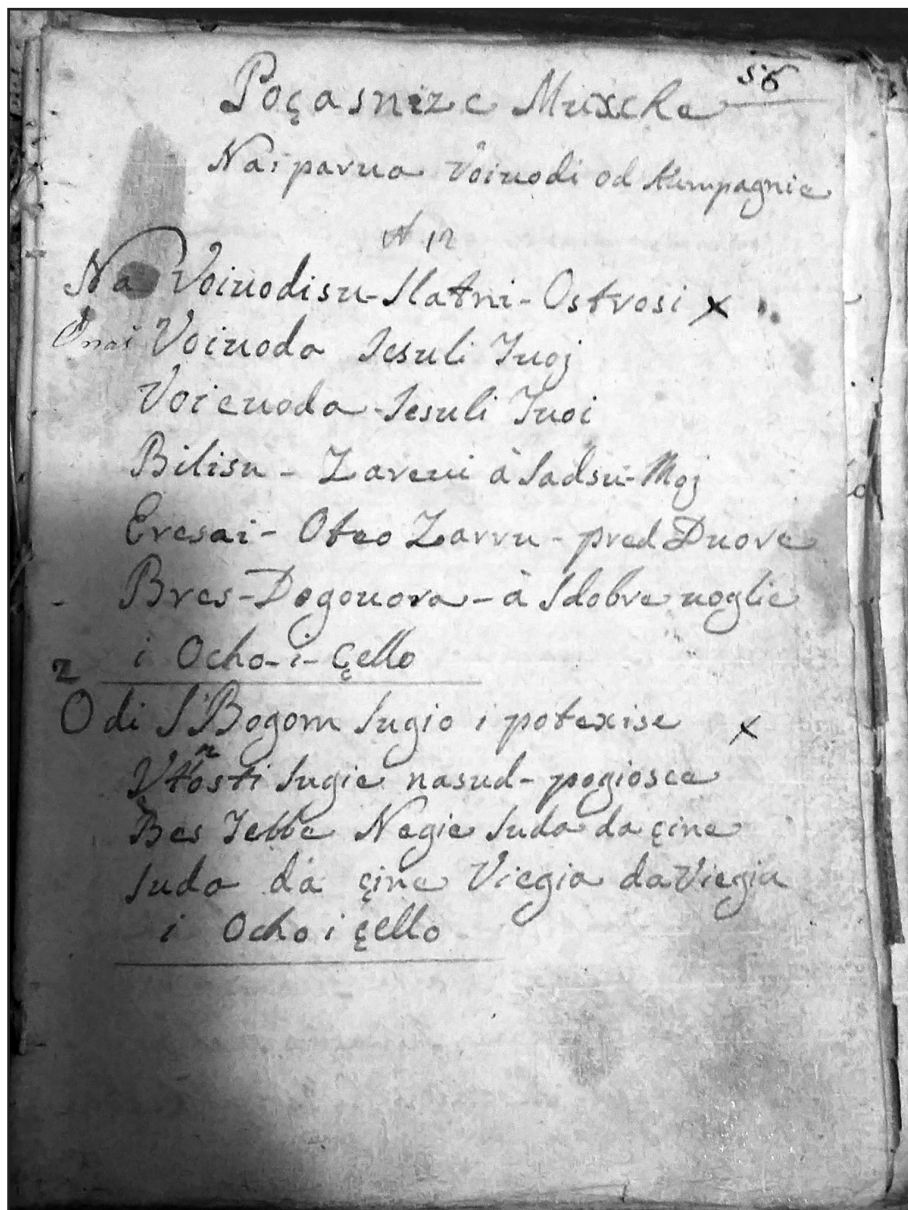 56
Poçasnize Muxche
Naiparvo Voivodi od Kumpagnie
N 12
Na Voivodisu-Slatni-Ostrosi x
O naš Voivoda Jesuli Tvoj
Voievoda-Jesuli Tvoi
Bilisu - Zarevi à Sadsu-Moj
Eresai-Oteo Zarru-pred Dvore
- Bres-Dogovora-à Sdobre voglie
i Ocho-i-Çello
2 Odi S'Bogom Sugio i potexise x
Sugie nasud-pogiosce
Bes Tebbe Negie Suda da çine
Suda dà çine Viegia da Viegia
i Ocho i çello